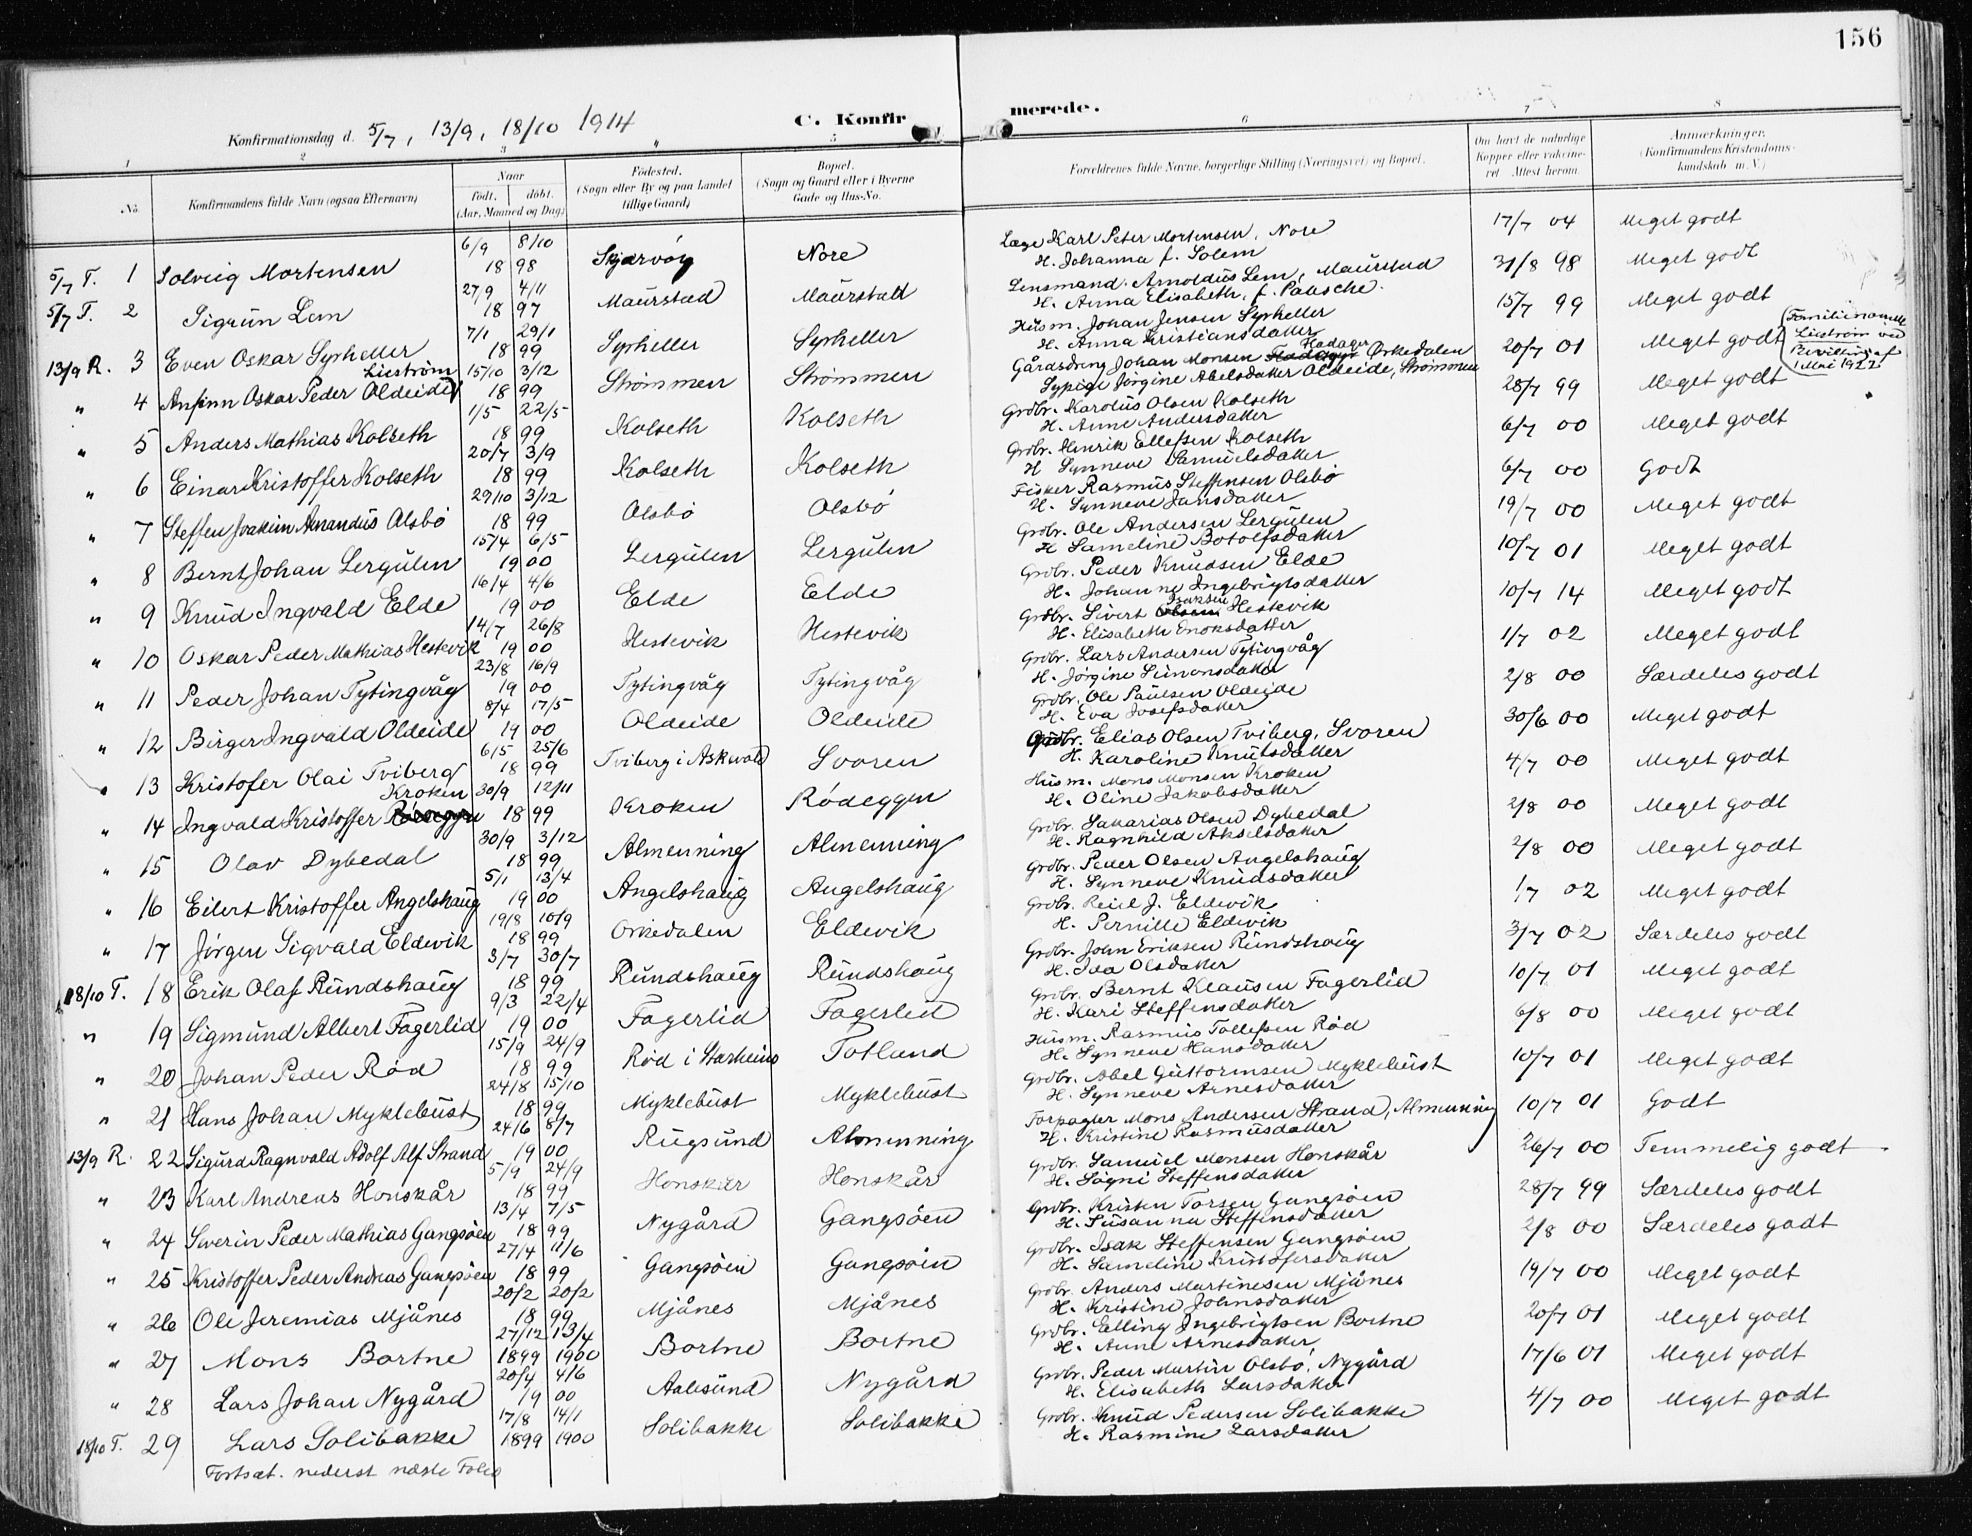 156
Konfirmationsdag d. 5/7, 13/9, 18/10 1914
C. Konfirmerede.
1 2 3 4 5 6 7 8
No.
Konfirmandens fulde Navn (ogsaa Efternavn)
Naar født. døbt. (Aar, Maaned og Dag)
Fødested. (Sogn eller By og paa Landet tillige Gaard)
Bopæl. (Sogn og Gaard eller i Byerne Gade og Hus-No.
Forældrenes fulde Navne, borgerlige Stilling (Næringsvei) og Bopæl.
Om havt de naturlige Kopper eller vakcineret. Attest herom.
Anmærkninger. (Konfirmandens Kristendomskundskab m. V.)
5/7 T. 1 Solveig Mortensen 6/9 8/10 18 98 Skjærvøy Nore Læge Karl Peter Mortensen, Nore H. Johanna f. Solem 17/7 04 Meget godt
5/7 T. 2 Sigrun Lem 27/9 4/11 18 97 Maurstad Maurstad Lensmand Arnoldus Lem, Maurstad H. Anna Elisabeth, f. Paasche. 31/8 98 Meget godt
13/9 R. 3 Even Oskar Syrheller 7/1 29/1 18 99 Syrheller Syrheller Husm. Johan Jensen Syrheller H. Anna Kristiansdatter 15/7 99 Meget godt
" 4 Anfinn Oskar Peder Oldeide Liestrøm 15/10 3/12 18 99 Strømmen Strømmen Gårdsdreng Johan Monsen Hadager Ørkedalen Sypige Jørgine Abelsdatter Oldeide, Strømmen 20/7 01 Meget godt (Familienavnet Liestrøm ved Bevilling af 1 Mai 1922)
" 5 Anders Mathias Kolseth 1/5 22/5 18 99 Kolseth Kolseth Grdbr. Karolus Olsen Kolseth H. Anne Andersdatter 28/7 99 Meget godt
" 6 Einar Kristoffer Kolseth 20/7 3/9 18 99 Kolseth Kolseth Grdbr. Henrik Ellefsen Kolseth H. Synneve Samuelsdatter 6/7 00 Meget godt
" 7 Steffen Joakim Amandus Olsbø 29/10 3/12 18 99 Olsbø Olsbø Fisker Rasmus Steffensen Olsbø H. Synneve Jansdatter 6/7 00 Godt
" 8 Bernt Johan Lergulen 15/4 6/5 19 00 Lergulen Lergulen Grdbr. Ole Andersen Lergulen H. Sameline Botolfsdatter 19/7 00 Meget godt
" 9 Knud Ingvald Elde 16/4 4/6 19 00 Elde Elde Grdbr. Peder Knudsen Elde H. Johanne Ingebrigtsdatter 10/7 01 Meget godt
" 10 Oskar Peder Mathias Hestevik 14/7 26/8 19 00 Hestevik Hestevik Grdbr. Sivert Olsen Isaksen Hestevik H. Elisabeth Enoksdatter 10/7 14 Meget godt
" 11 Peder Johan Tytingvåg 23/8 16/9 19 00 Tytingvåg Tytingvåg Grdbr. Lars Andersen Tytingvåg H. Jørgine Simonsdatter 1/7 02 Meget godt
" 12 Birger Ingvald Oldeide 8/4 17/5 19 00 Oldeide Oldeide Grdbr. Ole Paulsen Oldeide H. Eva Josefsdatter 2/8 00 Særdeles godt
" 13 Kristofer Olai Tviberg 6/5 25/6 18 99 Tviberg i Askevold Svoren Grdbr. Elias Olsen Tviberg, Svoren H. Karoline Knutsdatter 30/6 00 Meget godt
" 14 Ingvald Kristoffer Rødeggen Kroken 30/9 12/11 18 99 Kroken Rødeggen Husm. Mons Monsen Kroken H. Oline Jakobsdatter 4/7 00 Meget godt
" 15 Olav Dybedal 30/9 3/12 18 99 Almenning Almenning Grdbr. Sakarias Olsen Dybedal H. Ragnhild Akselsdatter 2/8 00 Meget godt
" 16 Eilert Kristoffer Angelshaug 5/1 13/4 19 00 Angelshaug Angelshaug Grdbr. Peder Olsen Angelshaug H. Synneve Knudsdatter 2/8 00 Meget godt
" 17 Jørgen Sigvald Eldevik 19/8 10/9 18 99 Ørkedalen Eldevik Grdbr. Reiel J. Eldevik H. Pernille Eldevik 1/7 02 Meget godt
18/10 T. 18 Erik Olaf Rundshaug 3/7 30/7 18 99 Rundshaug Rundshaug Grdbr. John Eriksen Rundshaug H. Ida Olsdatter 3/7 02 Særdeles godt
" 19 Sigmund Albert Fagerlid 9/3 22/4 19 00 Fagerlid Fagerlid Grdbr. Bernt Klausen Fagerlid H. Kari Steffensdatter 10/7 01 Meget godt
" 20 Johan Peder Rød 15/9 24/9 18 99 Rød i Starheim Totland Husm. Rasmus Tollefsen Rød H. Synneve Hansdatter 6/8 00 Meget godt
" 21 Hans Johan Myklebust 24/8 15/10 18 99 Myklebust Myklebust Grdbr. Abel Guttormsen Myklebust H. Synneve Arnesdatter 10/7 01 Meget godt
13/9 R. 22 Sigurd Ragnvald Adolf Alf Strand 24/6 8/7 19 00 Rugsund Almenning Forpagter Mons Andersen Strand, Almenning H. Kristine Rasmusdatter 10/7 01 Godt
" 23 Karl Andreas Honskår 5/9 24/9 18 99 Honskår Honskår Grdbr. Samuel Monsen Honskår H. Søgni Steffensdatter 26/7 00 Temmelig godt
" 24 Severin Peder Mathias Gangsøen 13/4 7/5 18 99 Nygård Gangsøen Grdbr. Kristen Torsen Gangsøen H. Susanna Steffensdatter 28/7 99 Særdeles godt
" 25 Kristoffer Peder Andreas Gangsøen 27/4 11/6 18 99 Gangsøen Gangsøen Grdbr. Isak Steffensen Gangsøen H. Sameline Kristofersdatter 2/8 00 Særdeles godt
" 26 Ole Jeremias Mjånes 20/2 20/2 18 99 Mjånes Mjånes Grdbr. Anders Martinesen Mjånes H. Kristine Johnsdatter 19/7 00 Meget godt
" 27 Mons Bortne 27/12 13/4 1899 1900 Bortne Bortne Grdbr. Elling Ingebrigtsen Bortne H. Anne Arnesdatter 20/7 01 Meget godt
" 28 Lars Johan Nygård 20/4 4/6 19 00 Aalesund Nygård Grdbr. Peder Martin Olsbø, Nygård H. Elisabeth Larsdatter 17/6 01 Meget godt
18/10 T. 29 Lars Solibakke 17/8 14/1 1899 1900 Solibakke Solibakke Grdbr. Knud Pedersen Solibakke H. Rasmine Larsdatter 4/7 00 Meget godt
Fortsat. nederst næste Folio